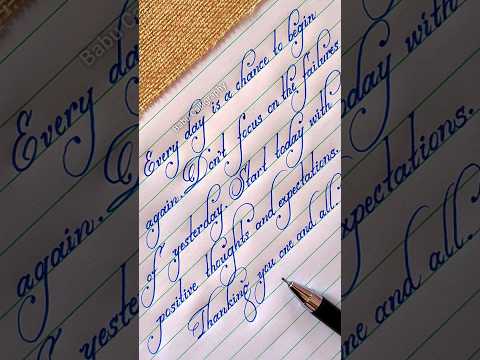 Every day is a chance to begin
again. Don't focus on the failures
of yesterday. Start today with
positive thoughts and expectations.
Thanking you one and all.
Babu Calligraphy